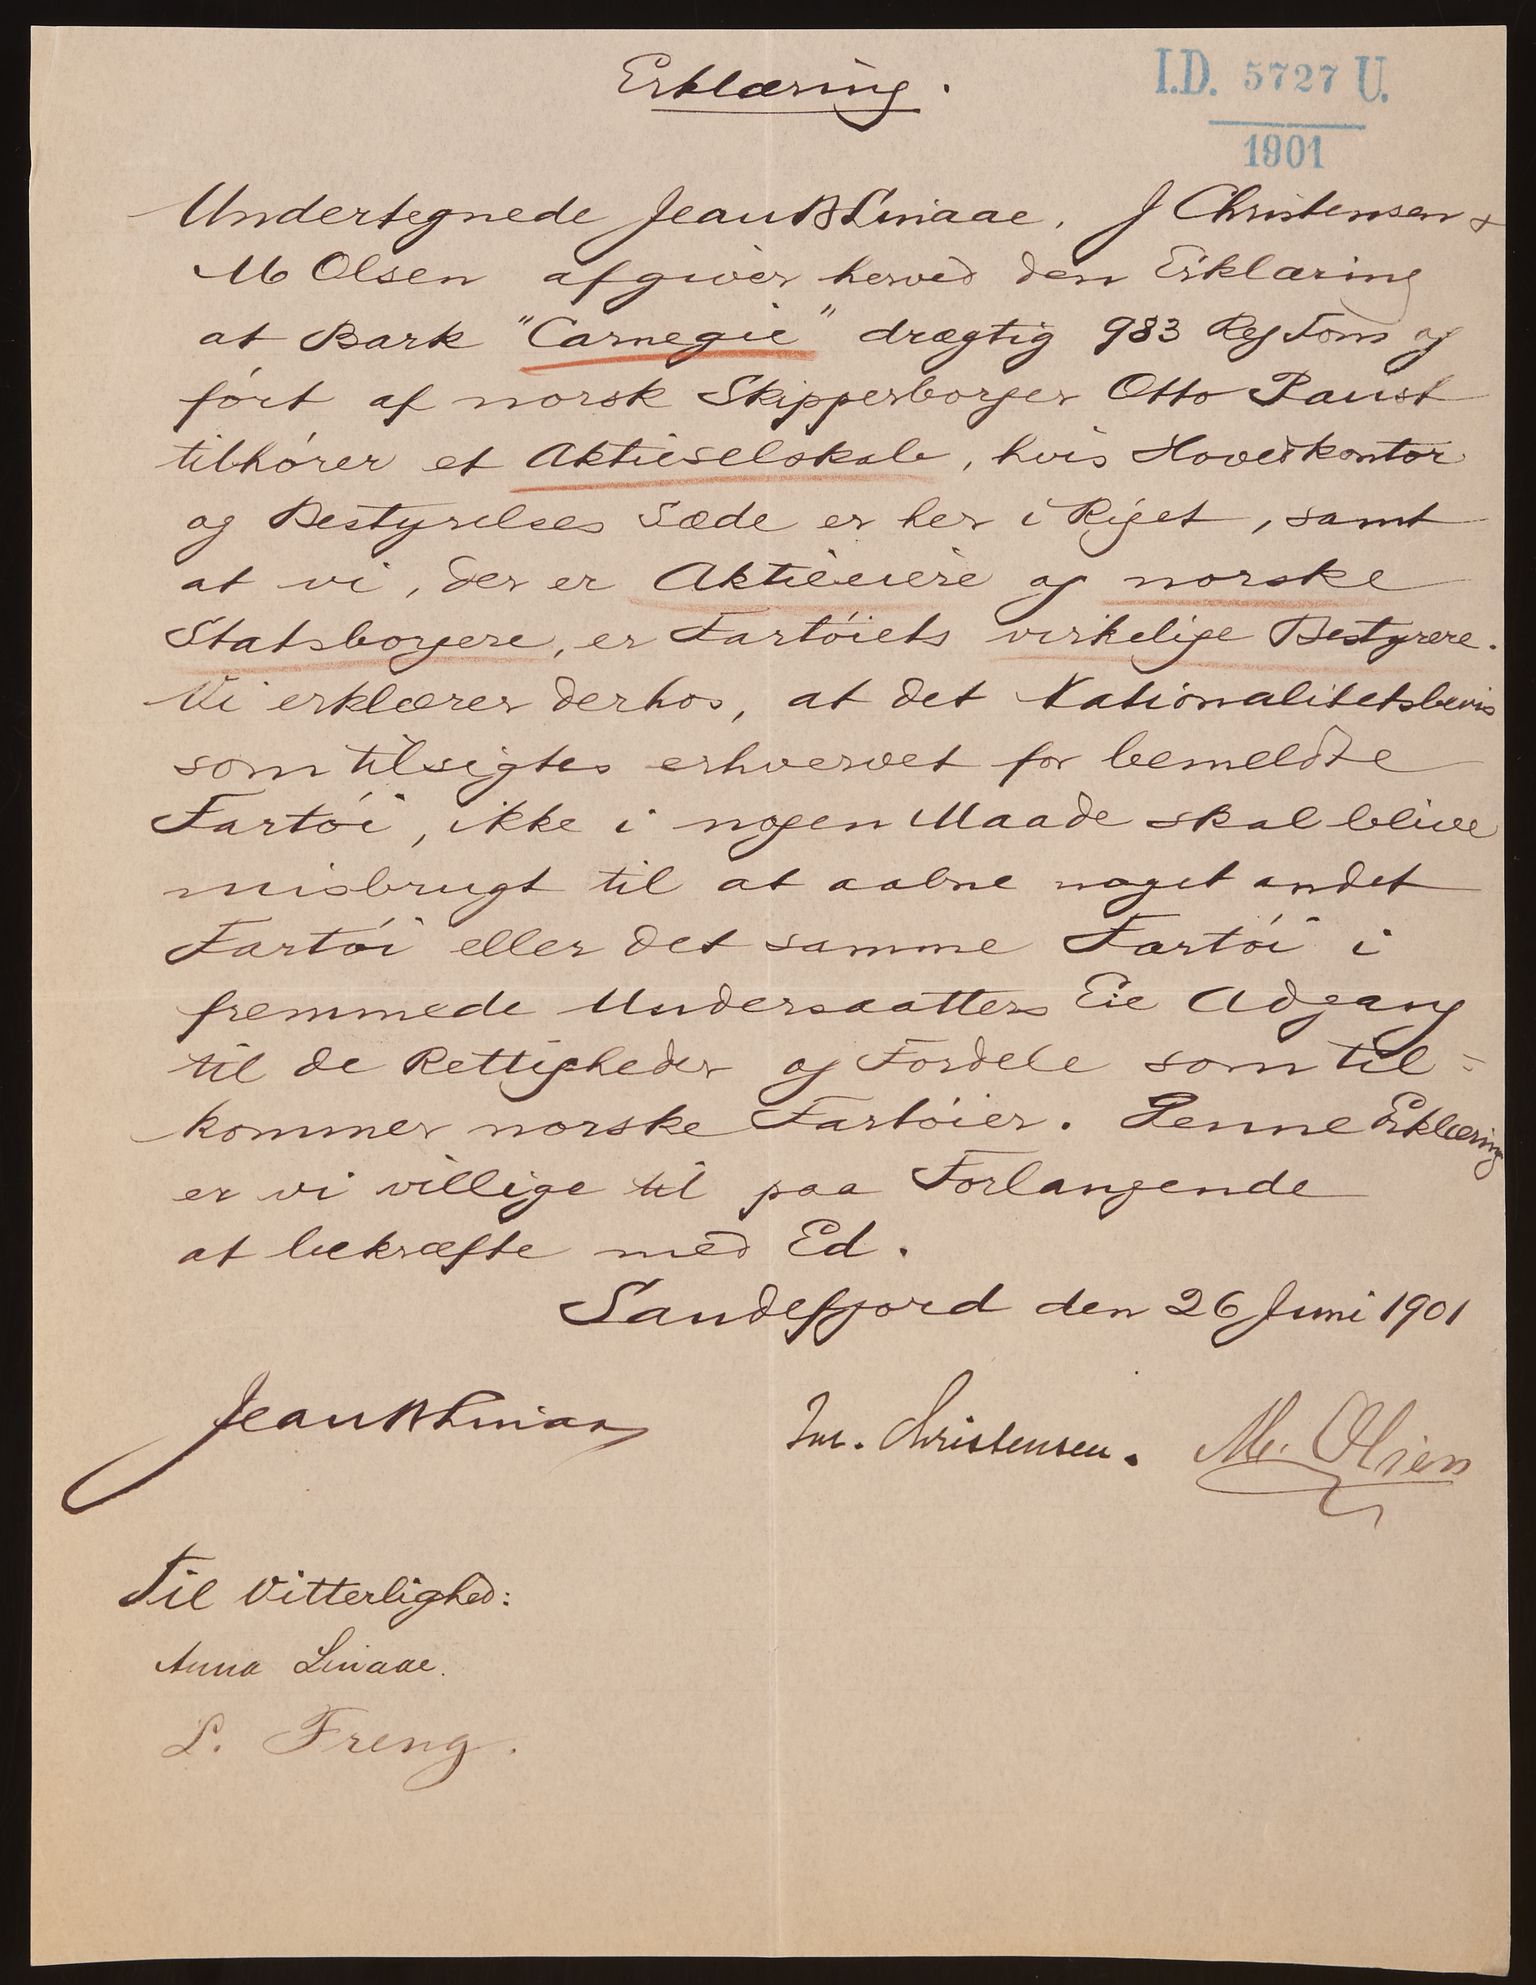 Erklæring.
I.D. 5727 U.
1901
Undertegnede Jean B Linaae. J Christensen &
M Olsen afgiver herved den Erklæring
at Bark "Carnegie" drægtig 983 Reg Tons og
ført af norsk Skipperborger Otto Paust
tilhører et Aktieselskab, hvis Hovedkontor
og Bestyrelses Sæde er her i Riget, samt
at vi, der er Aktieeiere og norske
Statsborgere, er Fartøiets virkelige Bestyrere.
Vi erklærer derhos, at det Nationalitetsbevis
som tilsigtes erhvervet for bemeldte
Fartøi, ikke i nogen Maade skal blive
misbrugt til at aabne noget andet
Fartøi eller det samme Fartøi i
fremmede Undersaatters Eie Adgang
til de Rettigheder og Fordele som til-
kommer norske Fartøier. Denne Erklæring
er vi villige til paa Forlangende
at bekræfte med Ed.
Sandefjord den 26 Juni 1901
Jean B Linaae Chr. Christensen. M. Olsen
Til Vitterlighed:
Anna Linaae.
L. Freng.